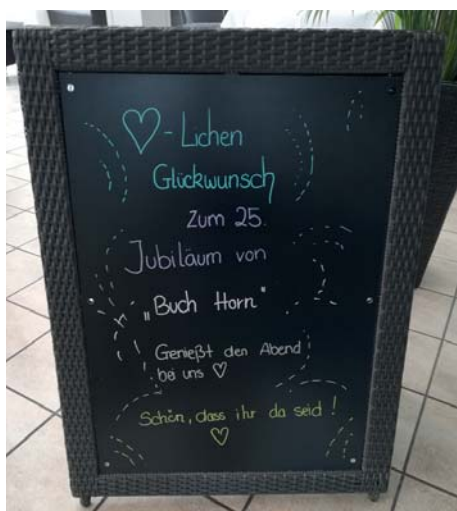 ♡-Lichen
Glückwunsch
Zum 25.
Jubiläum von
„Buch Horn"
Genießt den Abend
bei uns ♡
Schön, dass ihr da seid !
♡